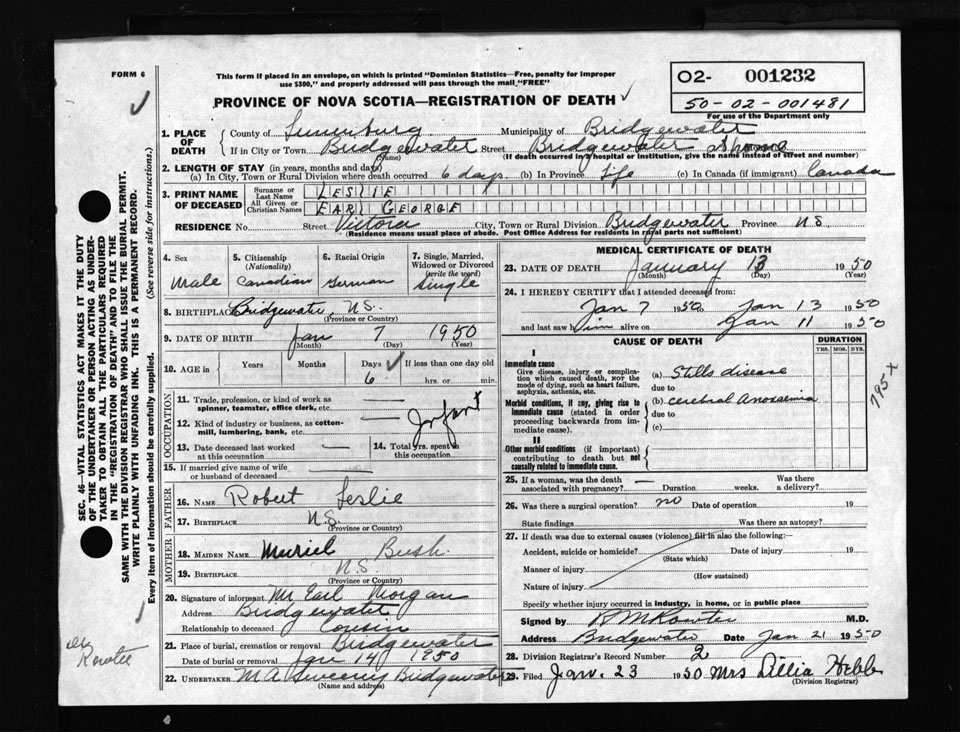 FORM 6
This form if placed in an envelope, on which is printed "Dominion Statistics—Free, penalty for improper
use $300," and properly addressed will pass through the mail "FREE"
O2- 001232
50-02-001481
For use of the Department only
PROVINCE OF NOVA SCOTIA—REGISTRATION OF DEATH
1. PLACE OF DEATH
County of Lunenburg Municipality of Bridgewater
If in City or Town Bridgewater Street Bridgewater
(Name) (If death occurred in a hospital or institution, give the name instead of street and number)
2. LENGTH OF STAY (in years, months and days)
(a) In City, Town or Rural Division where death occurred 6 days (b) In Province Life (c) In Canada (if immigrant) Canada
3. PRINT NAME OF DECEASED
Surname or Last Name LESLIE
All Given or Christian Names EARL GEORGE
RESIDENCE No. Street Victoria City, Town or Rural Division Bridgewater Province N.S.
(Residence means usual place of abode. Post Office Address for residents in rural parts not sufficient)
4. Sex Male
5. Citizenship (Nationality) Canadian
6. Racial Origin German
7. Single, Married, Widowed or Divorced (write the word) Single
8. BIRTHPLACE Bridgewater, N.S.
(Province or Country)
9. DATE OF BIRTH Jan 7 1950
(Month) (Day) (Year)
10. AGE in Years Months Days 6 If less than one day old hrs. or min.
OCCUPATION
11. Trade, profession, or kind of work as spinner, teamster, office clerk, etc.
12. Kind of industry or business, as cotton-mill, lumbering, bank, etc.
Infant
13. Date deceased last worked at this occupation
14. Total yrs. spent in this occupation
15. If married give name of wife or husband of deceased
FATHER
16. NAME Robert Leslie
17. BIRTHPLACE N.S.
(Province or Country)
MOTHER
18. MAIDEN NAME Muriel Bush
19. BIRTHPLACE N.S.
(Province or Country)
20. Signature of informant Mr Earl Morgan
Address Bridgewater
Relationship to deceased Cousin
21. Place of burial, cremation or removal Bridgewater
Date of burial or removal Jan 14 1950
22. UNDERTAKER M A Sweeny Bridgewater
(Name and address)
MEDICAL CERTIFICATE OF DEATH
23. DATE OF DEATH January 13 1950
(Month) (Day) (Year)
24. I HEREBY CERTIFY that I attended deceased from:
Jan 7 1950 to Jan 13 1950
and last saw him alive on Jan 11 1950
CAUSE OF DEATH
DURATION
YRS. MOS. DYS.
I
Immediate cause
Give disease, injury or complication which caused death, NOT the mode of dying, such as heart failure, asphyxia, asthenia, etc.
(a) Stills disease
due to
Morbid conditions, if any, giving rise to immediate cause (stated in order proceeding backwards from immediate cause).
(b) cerebral Anoxaemia
due to
(c)
II
Other morbid conditions (if important) contributing to death but not causally related to immediate cause.
795 X
25. If a woman, was the death associated with pregnancy? Duration weeks. Was there a delivery?
26. Was there a surgical operation? no Date of operation 19
State findings Was there an autopsy?
27. If death was due to external causes (violence) fill in also the following:—
Accident, suicide or homicide? Date of injury 19
(State which)
Manner of injury
(How sustained)
Nature of injury
Specify whether injury occurred in industry, in home, or in public place
Signed by M.D.
Address Bridgewater Date Jan 21 1950
28. Division Registrar's Record Number 2
29. Filed Jan. 23 1950 Mrs Lillia Hebb
(Division Registrar)
SEC. 46—VITAL STATISTICS ACT MAKES IT THE DUTY
OF THE UNDERTAKER OR PERSON ACTING AS UNDER-
TAKER TO OBTAIN ALL THE PARTICULARS REQUIRED
IN THE "REGISTRATION OF DEATH" AND TO FILE THE
SAME WITH THE DIVISION REGISTRAR WHO SHALL ISSUE THE BURIAL PERMIT.
WRITE PLAINLY WITH UNFADING INK. THIS IS A PERMANENT RECORD.
Every item of information should be carefully supplied. (See reverse side for instructions.)